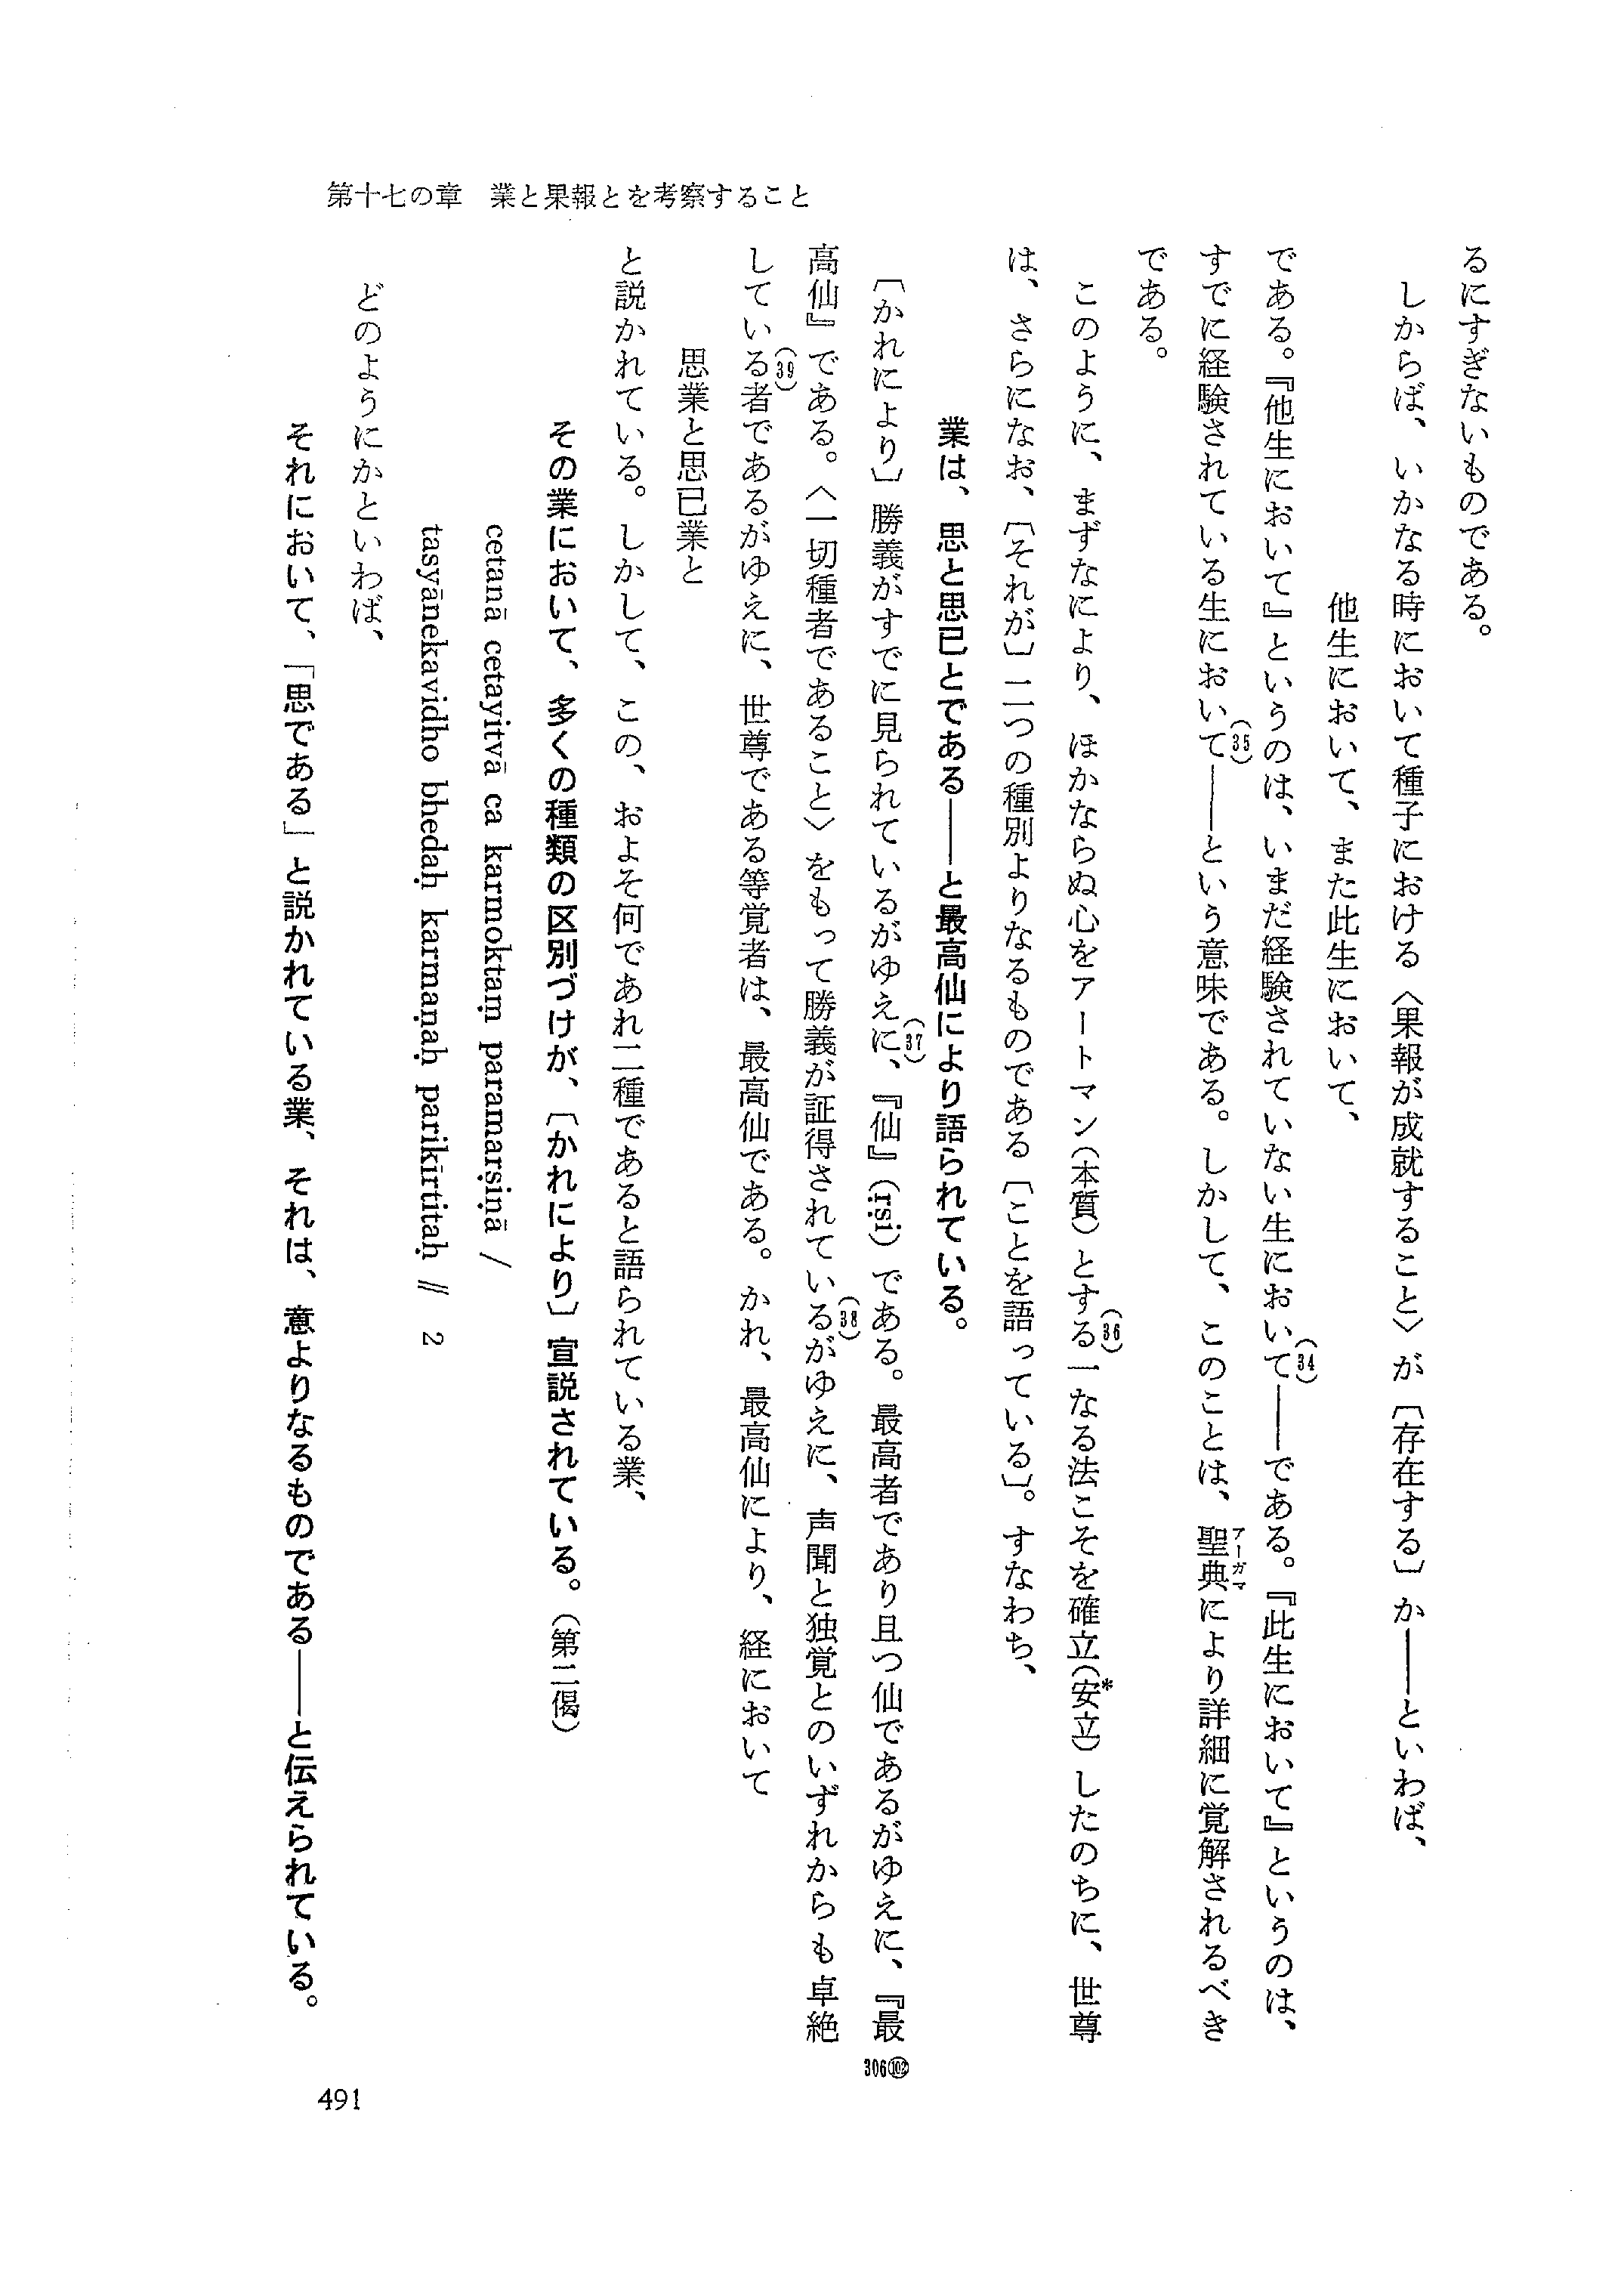 第十七の章　業と果報とを考察すること
るにすぎないものである。
しからば、いかなる時において種子における〈果報が成就すること〉が〔存在する〕か――といわば、
他生において、また此生において、
である。『他生において』というのは、いまだ経験されていない生において(34)――である。『此生において』というのは、
すでに経験されている生において(35)――という意味である。しかして、このことは、聖典アーガマにより詳細に覚解されるべき
である。
このように、まずなにより、ほかならぬ心をアートマン(本質)とする(36)一なる法こそを確立(安立)*したのちに、世尊
は、さらになお、〔それが〕二つの種別よりなるものである〔ことを語っている〕。すなわち、
業は、思と思已とである――と最高仙により語られている。
〔かれにより〕勝義がすでに見られているがゆえに(37)、『仙』(ṛṣi)である。最高者であり且つ仙であるがゆえに、『最
高仙』である。〈一切種者であること〉をもって勝義が証得されている(38)がゆえに、声聞と独覚とのいずれからも卓絶
している者(39)であるがゆえに、世尊である等覚者は、最高仙である。かれ、最高仙により、経において
思業と思已業と
と説かれている。しかして、この、およそ何であれ二種であると語られている業、
その業において、多くの種類の区別づけが、〔かれにより〕宣説されている。(第二偈)
cetanā cetayitvā ca karmoktaṃ paramarṣiṇā /
tasyānekavidho bhedaḥ karmaṇaḥ parikīrtitaḥ // 2
どのようにかといわば、
それにおいて、「思である」と説かれている業、それは、意よりなるものである――と伝えられている。
306⑩②
491